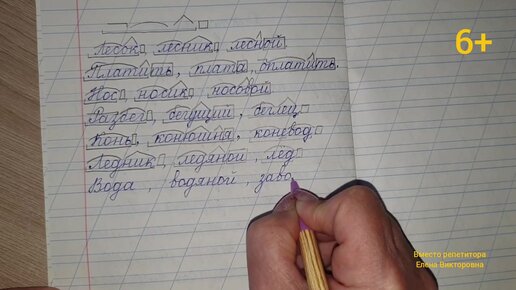 Лесок, лесник, лесной
Платить, плата, оплатить.
Нос, носик, носовой
Разбег, бегущий, беглец
Конь, конюшня, коневод
Ледник, ледяной, лёд
Вода, водяной, заво
6+
Вместо репетитора
Елена Викторовна